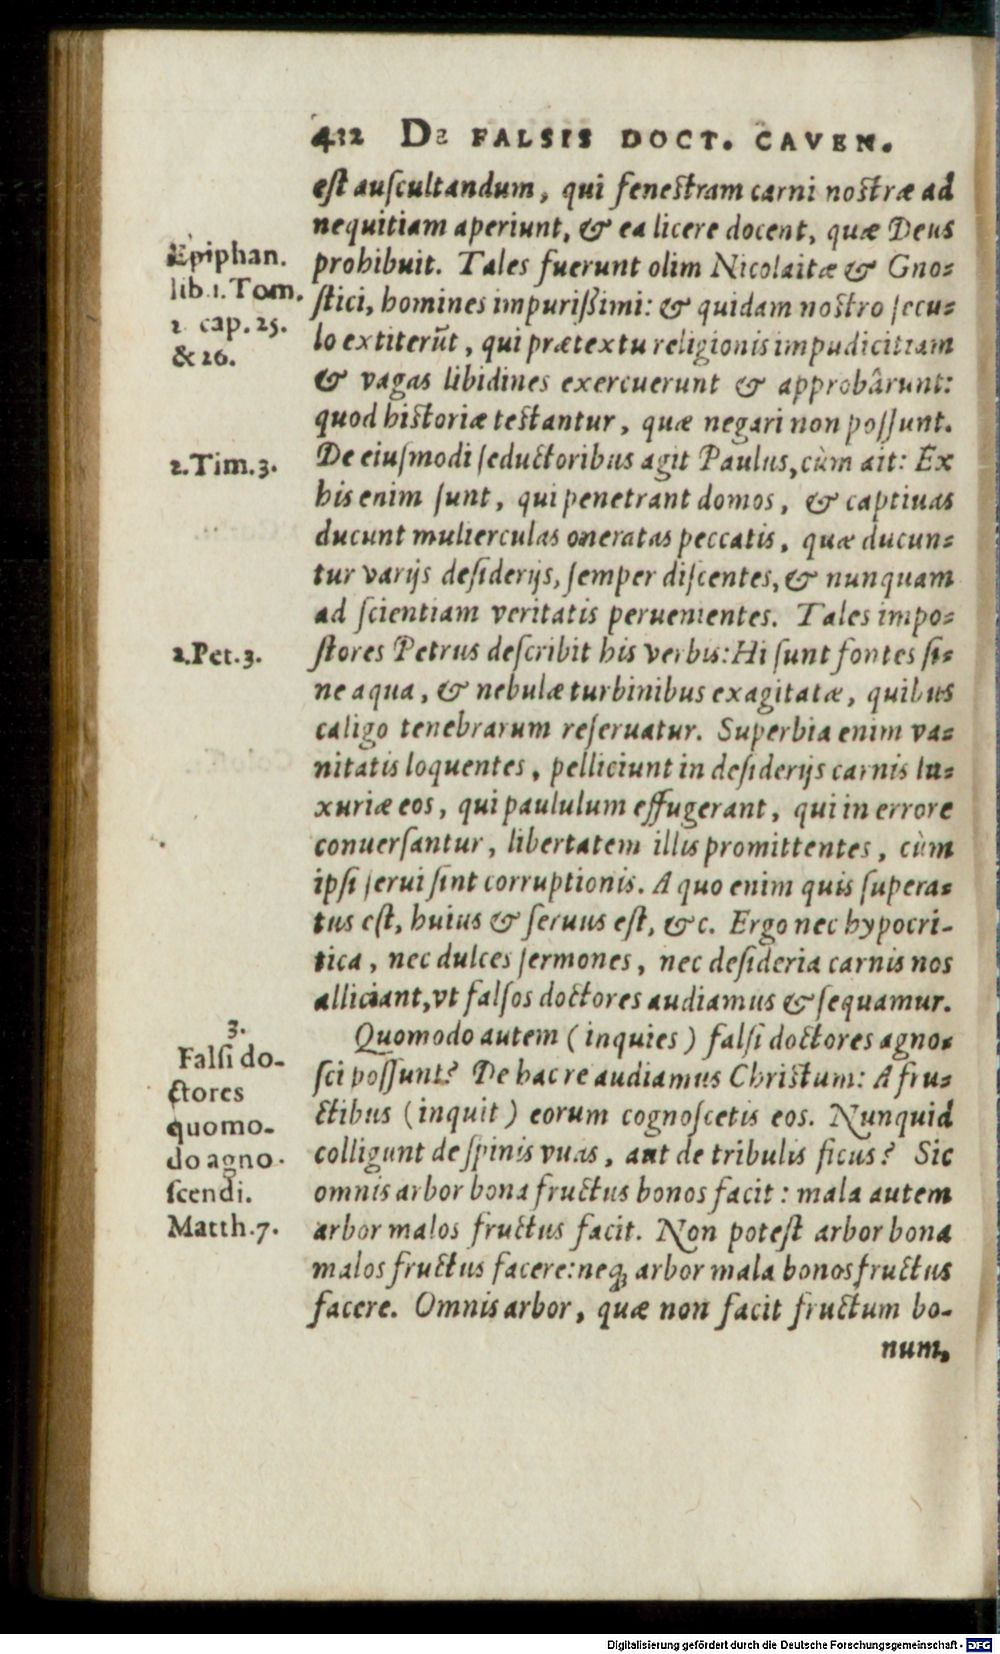 432 DE FALSIS DOCT. CAVEN.
est auſcultandum, qui feneſtram carni noſtræ ad
nequitiam aperiunt, & ea licere docent, quæ Deus
prohibuit. Tales fuerunt olim Nicolaitæ & Gno=
ſtici, homines impurißimi: & quidam noſtro ſecu=
lo extiterūt, qui prætextu religionis impudicitiam
& vagas libidines exercuerunt & approbârunt:
quod hiſtoriæ teſtantur, quæ negari non poſſunt.
De eiuſmodi ſeductoribus agit Paulus, cùm ait: Ex
his enim ſunt, qui penetrant domos, & captiuas
ducunt mulierculas oneratas peccatis, quæ ducun=
tur varijs deſiderijs, ſemper diſcentes, & nunquam
ad ſcientiam veritatis peruenientes. Tales impo=
ſtores Petrus deſcribit his verbis: Hi ſunt fontes ſi=
ne aqua, & nebulæ turbinibus exagitatæ, quibus
caligo tenebrarum reſeruatur. Superbia enim va=
nitatis loquentes, pelliciunt in deſiderijs carnis lu=
xuriæ eos, qui paululum effugerant, qui in errore
conuerſantur, libertatem illis promittentes, cùm
ipſi ſerui ſint corruptionis. A quo enim quis ſupera=
tus eſt, huius & ſeruus eſt, &c. Ergo nec hypocri-
tica, nec dulces ſermones, nec deſideria carnis nos
alliciant, vt falſos doctores audiamus & ſequamur.
Quomodo autem (inquies) falſi doctores agno=
ſci poſſunt? De hac re audiamus Chriſtum: A fru=
ctibus (inquit) eorum cognoſcetis eos. Nunquid
colligunt de ſpinis vuas, aut de tribulis ficus? Sic
omnis arbor bona fructus bonos facit: mala autem
arbor malos fructus facit. Non poteſt arbor bona
malos fructus facere: neq; arbor mala bonos fructus
facere. Omnis arbor, quæ non facit fructum bo-
num,
Epiphan.
lib.1. Tom.
2 cap. 25.
& 26.
2.Tim.3.
2.Pet.3.
3.
Falſi do-
ctores
quomo-
do agno-
ſcendi.
Matth.7.
Digitalisierung gefördert durch die Deutsche Forschungsgemeinschaft - DFG